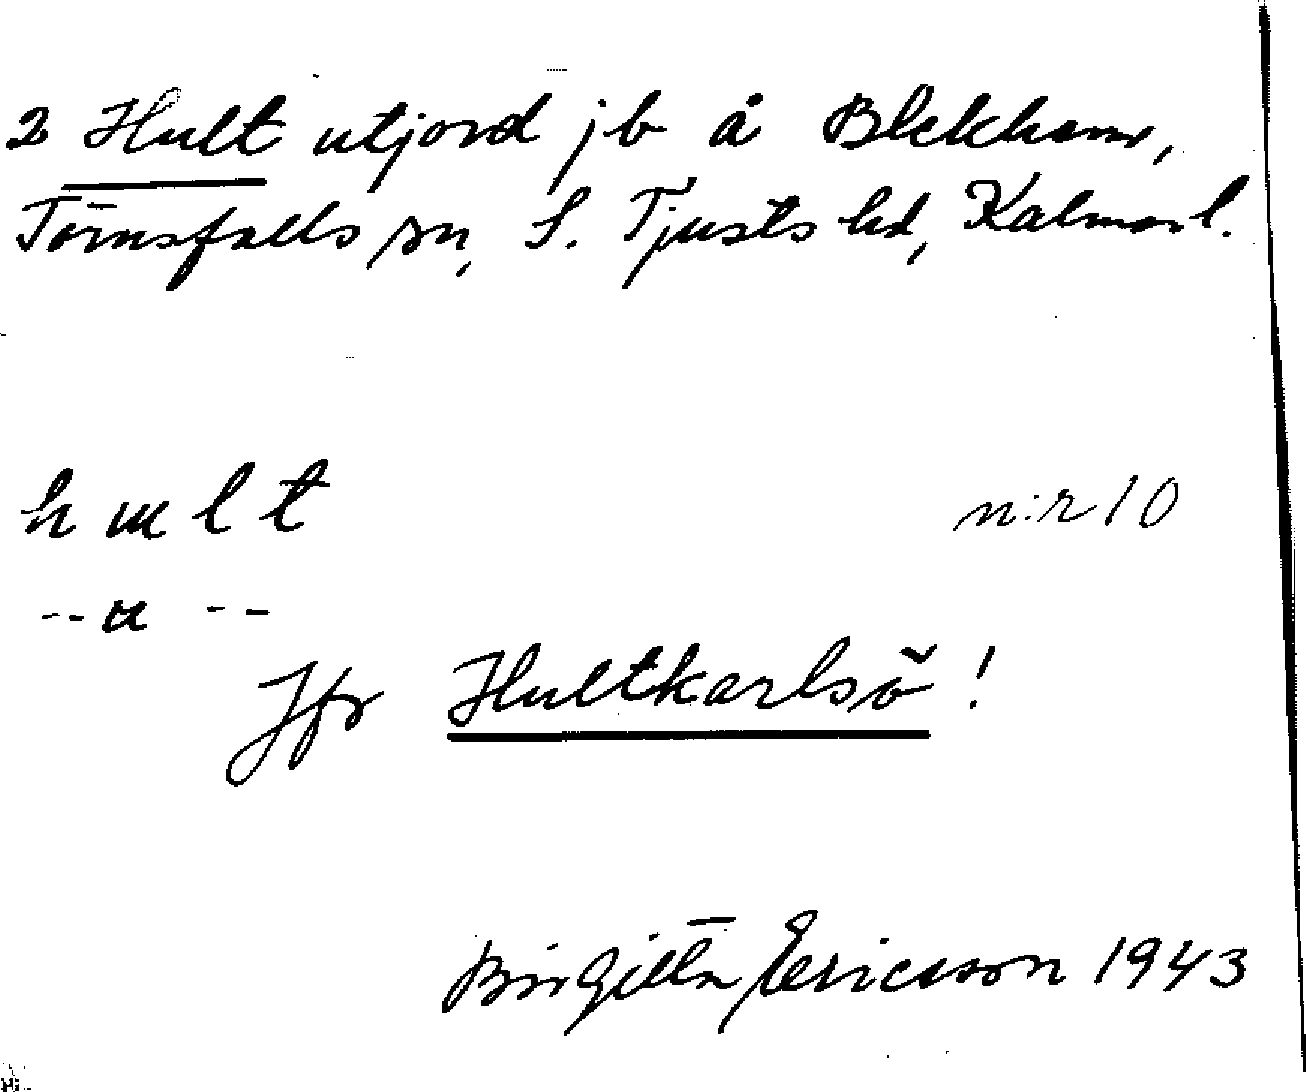 2 Hult utjord jb å Blekhem,
Törnsfalls sn, S. Tjusts hd, Kalmar l.
h ɯ l t n:r 10
-- a --
Jfr Hultkarlsö!
Birgitta Ericsson 1943